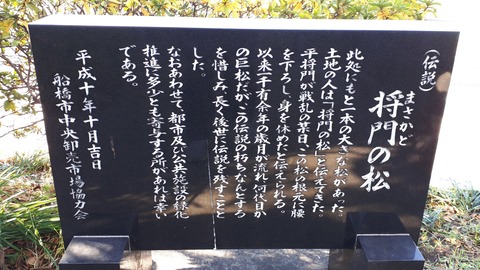 (伝説)
まさかど
将門の松
此処にもと一本の大きな松があった
土地の人は「将門の松」と伝えてきた。
平将門が戦乱の某日、この松の根元に腰
を下ろし、身を休めたと伝えられる。
以来一千有余年の歳月が流れ何代目か
の巨松だが、この伝説の朽ちなんとする
を惜しみ、長く後世に伝説を残すことと
した。
なおあわせて、都市及び公共施設の緑化
推進に多少とも寄与する所があれば幸い
である。
平成十年十月吉日
船橋市中央卸売市場協力会